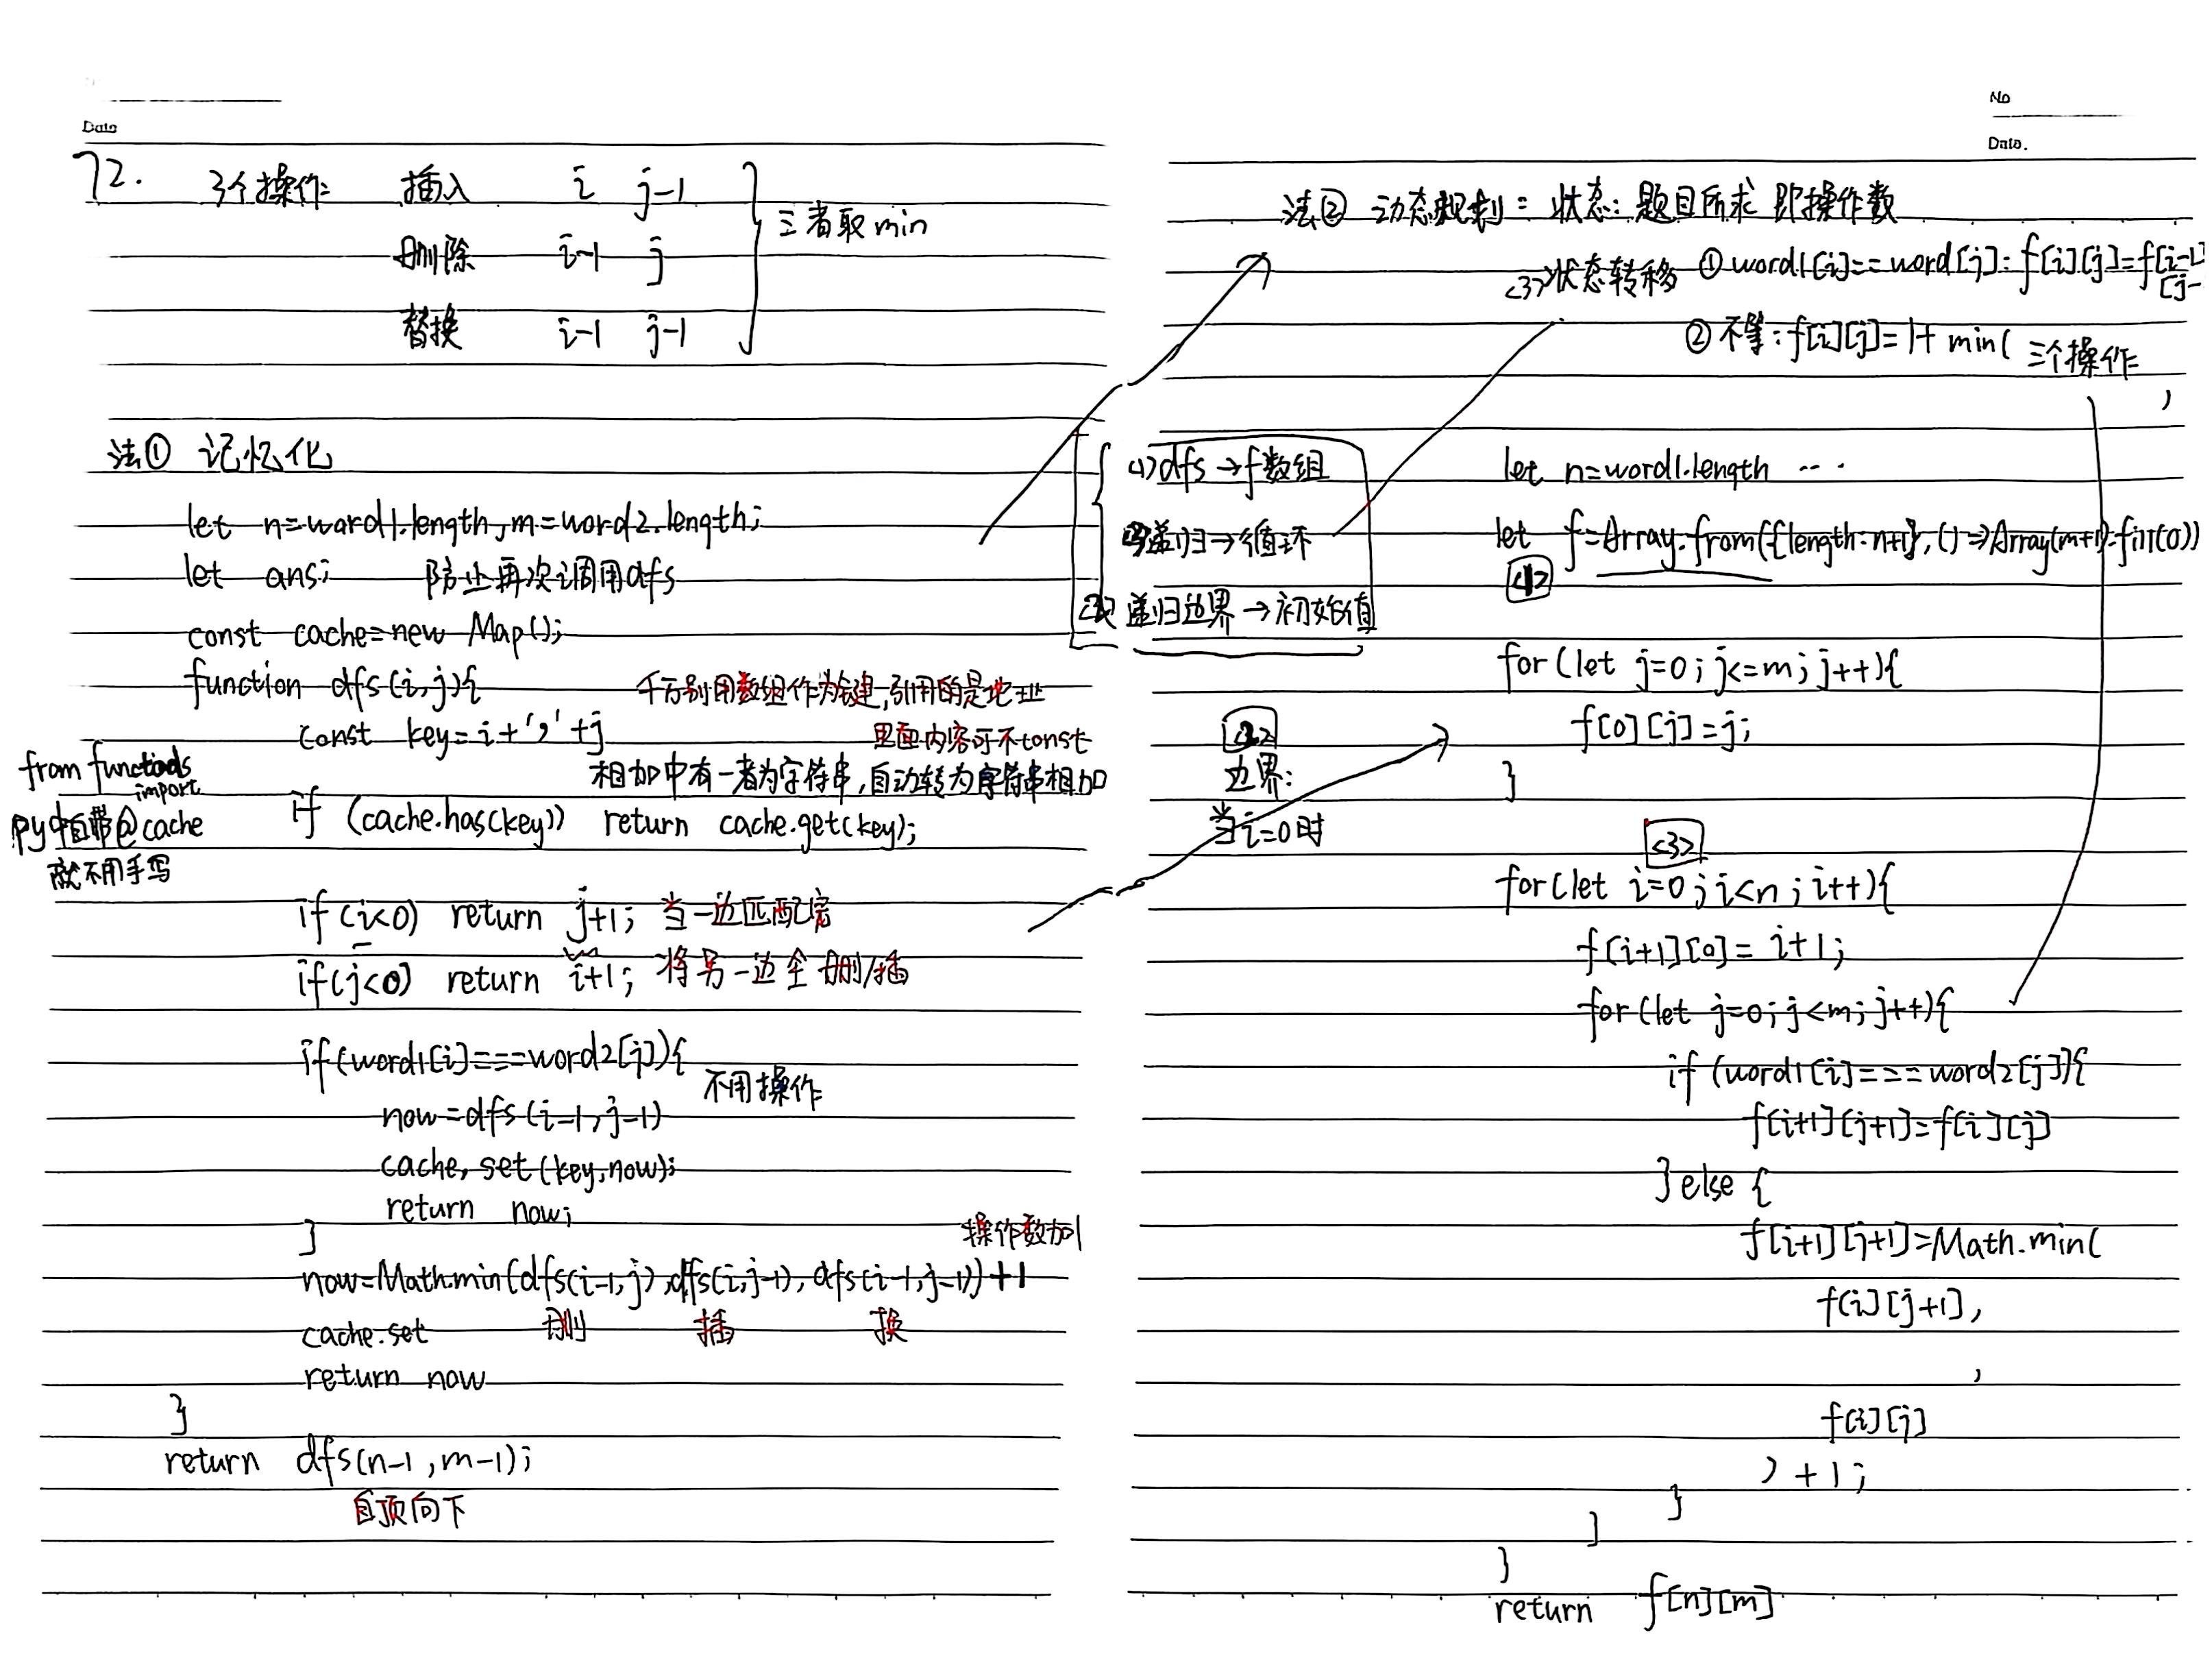 Date
72. 3个操作: 插入 i j-1
删除 i-1 j
替换 i-1 j-1
三者取min
法① 记忆化
let n=word1.length,m=word2.length;
let ans; 防止再次调用dfs
const cache=new Map();
function dfs(i,j){
千万别用数组作为键,引用的是地址
里面内容可不const
const key=i+','+j
相加中有一者为字符串,自动转为字符串相加
from functools
import
py中自带@cache
就不用手写
if (cache.has(key)) return cache.get(key);
if(i<0) return j+1; 当一边匹配完
if(j<0) return i+1; 将另一边全删/插
if(word1[i]===word2[j]){
不用操作
now=dfs(i-1,j-1)
cache.set(key,now);
return now;
}
操作数加1
now=Math.min(dfs(i-1,j),dfs(i,j-1),dfs(i-1,j-1))+1
删 插 换
cache.set
return now
}
return dfs(n-1,m-1);
自顶向下
No
Date.
法② 动态规划: 状态: 题目所求 即操作数
<3>状态转移 ① word1[i]==word[j]: f[i][j]=f[i-1]
[j-
② 不等: f[i][j]=1+ min( 三个操作
)
(1)dfs→f数组
递归→循环
递归边界→初始值
let n=word1.length ...
let f=Array.from({length:n+1},()=>Array(m+1).fill(0))
<1>
for(let j=0;j<=m;j++){
f[0][j]=j;
}
<2>
边界:
当i=0时
<3>
for(let i=0;i<n;i++){
f[i+1][0]=i+1;
for(let j=0;j<m;j++){
if(word1[i]===word2[j]){
f[i+1][j+1]=f[i][j]
}else{
f[i+1][j+1]=Math.min(
f[i][j+1],
,
f[i][j]
)+1;
}
}
}
return f[n][m]